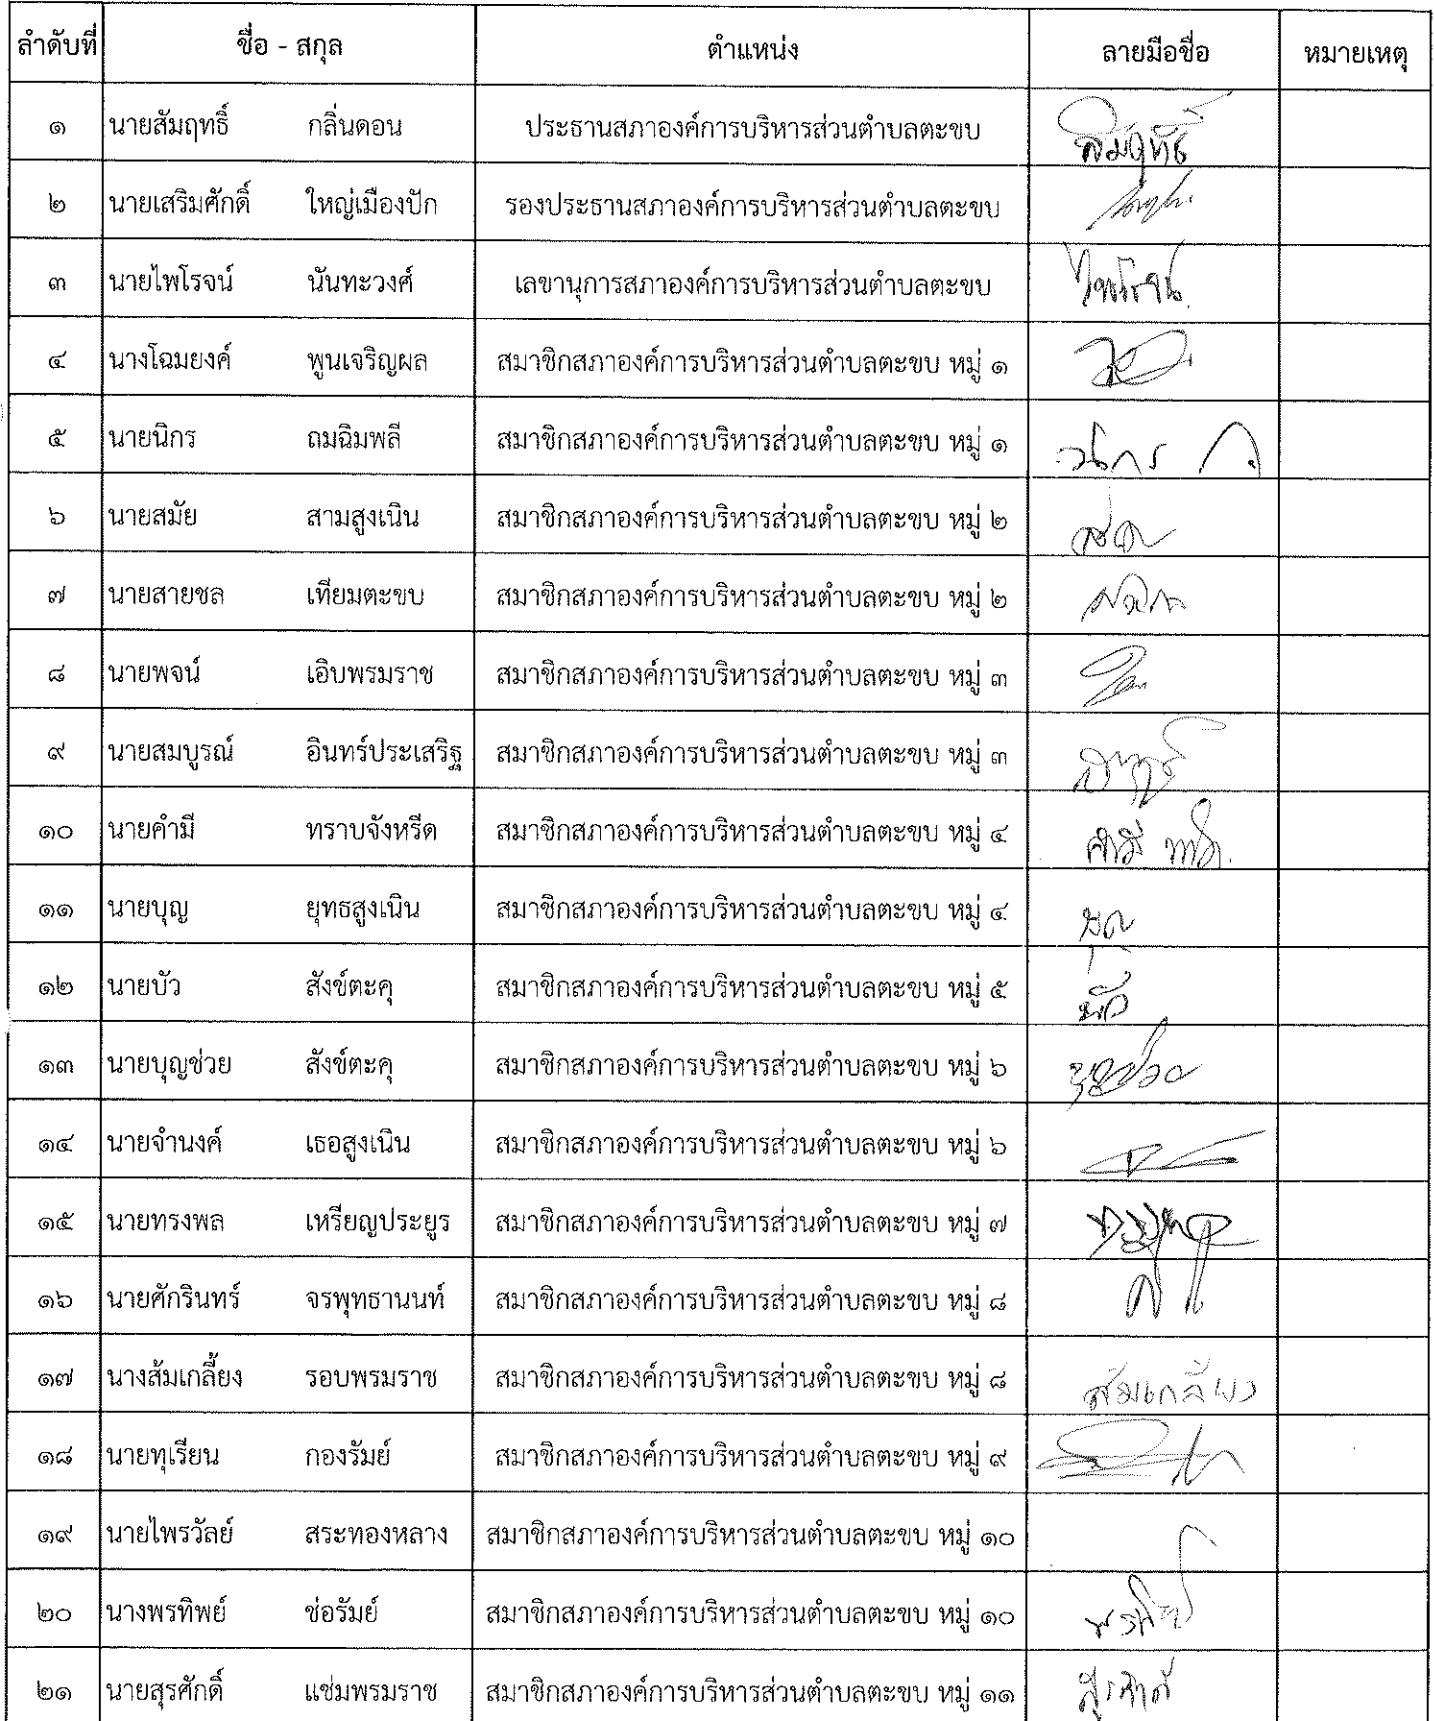 ลำดับที่ ชื่อ - สกุล ตำแหน่ง ลายมือชื่อ หมายเหตุ
๑ นายสัมฤทธิ์ กลิ่นดอน ประธานสภาองค์การบริหารส่วนตำบลตะขบ สัมฤทธิ์
๒ นายเสริมศักดิ์ ใหญ่เมืองปัก รองประธานสภาองค์การบริหารส่วนตำบลตะขบ
๓ นายไพโรจน์ นันทะวงศ์ เลขานุการสภาองค์การบริหารส่วนตำบลตะขบ ไพโรจน์
๔ นางโฉมยงค์ พูนเจริญผล สมาชิกสภาองค์การบริหารส่วนตำบลตะขบ หมู่ ๑
๕ นายนิกร ถมฉิมพลี สมาชิกสภาองค์การบริหารส่วนตำบลตะขบ หมู่ ๑
๖ นายสมัย สามสูงเนิน สมาชิกสภาองค์การบริหารส่วนตำบลตะขบ หมู่ ๒
๗ นายสายชล เทียมตะขบ สมาชิกสภาองค์การบริหารส่วนตำบลตะขบ หมู่ ๒
๘ นายพจน์ เอิบพรมราช สมาชิกสภาองค์การบริหารส่วนตำบลตะขบ หมู่ ๓
๙ นายสมบูรณ์ อินทร์ประเสริฐ สมาชิกสภาองค์การบริหารส่วนตำบลตะขบ หมู่ ๓
๑๐ นายคำมี ทราบจังหรีด สมาชิกสภาองค์การบริหารส่วนตำบลตะขบ หมู่ ๔
๑๑ นายบุญ ยุทธสูงเนิน สมาชิกสภาองค์การบริหารส่วนตำบลตะขบ หมู่ ๔ บุญ
๑๒ นายบัว สังข์ตะคุ สมาชิกสภาองค์การบริหารส่วนตำบลตะขบ หมู่ ๕ บัว
๑๓ นายบุญช่วย สังข์ตะคุ สมาชิกสภาองค์การบริหารส่วนตำบลตะขบ หมู่ ๖ บุญช่วย
๑๔ นายจำนงค์ เธอสูงเนิน สมาชิกสภาองค์การบริหารส่วนตำบลตะขบ หมู่ ๖
๑๕ นายทรงพล เหรียญประยูร สมาชิกสภาองค์การบริหารส่วนตำบลตะขบ หมู่ ๗
๑๖ นายศักรินทร์ จรพุทธานนท์ สมาชิกสภาองค์การบริหารส่วนตำบลตะขบ หมู่ ๘
๑๗ นางส้มเกลี้ยง รอบพรมราช สมาชิกสภาองค์การบริหารส่วนตำบลตะขบ หมู่ ๘ ส้มเกลี้ยง
๑๘ นายทุเรียน กองรัมย์ สมาชิกสภาองค์การบริหารส่วนตำบลตะขบ หมู่ ๙
๑๙ นายไพรวัลย์ สระทองหลาง สมาชิกสภาองค์การบริหารส่วนตำบลตะขบ หมู่ ๑๐
๒๐ นางพรทิพย์ ช่อรัมย์ สมาชิกสภาองค์การบริหารส่วนตำบลตะขบ หมู่ ๑๐ พรทิพย์
๒๑ นายสุรศักดิ์ แช่มพรมราช สมาชิกสภาองค์การบริหารส่วนตำบลตะขบ หมู่ ๑๑ สุรศักดิ์